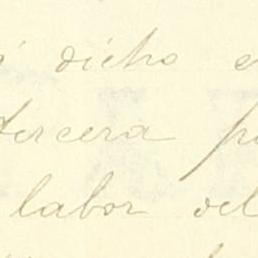 dicho
tercera
labor del